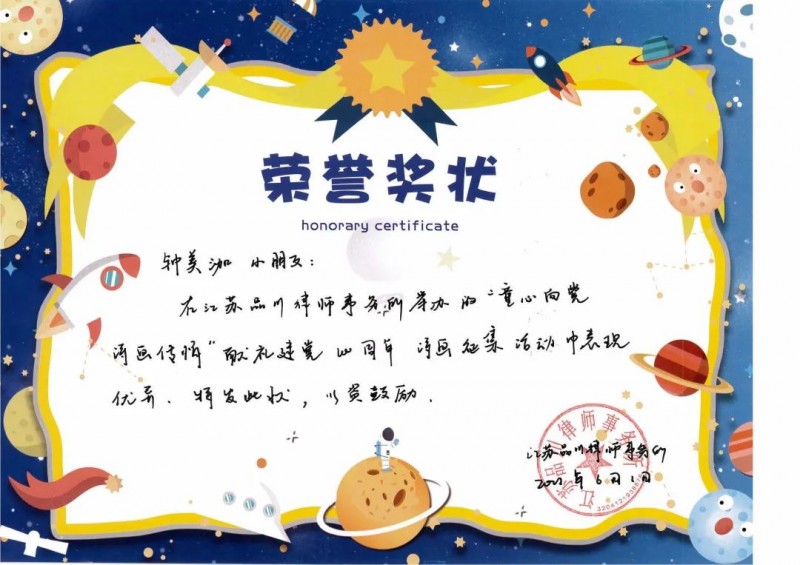 荣誉奖状
honorary certificate
钟美泇 小朋友：
在江苏品川律师事务所举办的“童心向党
诗画传情”献礼建党100周年 诗画征集活动中表现
优异．特发此状，以资鼓励．
江苏品川律师事务所
2021年6月1日
江苏品川律师事务所